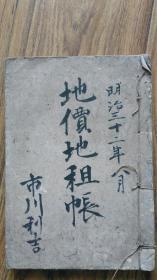 明治三十二年八月
地價地租帳
市川利吉